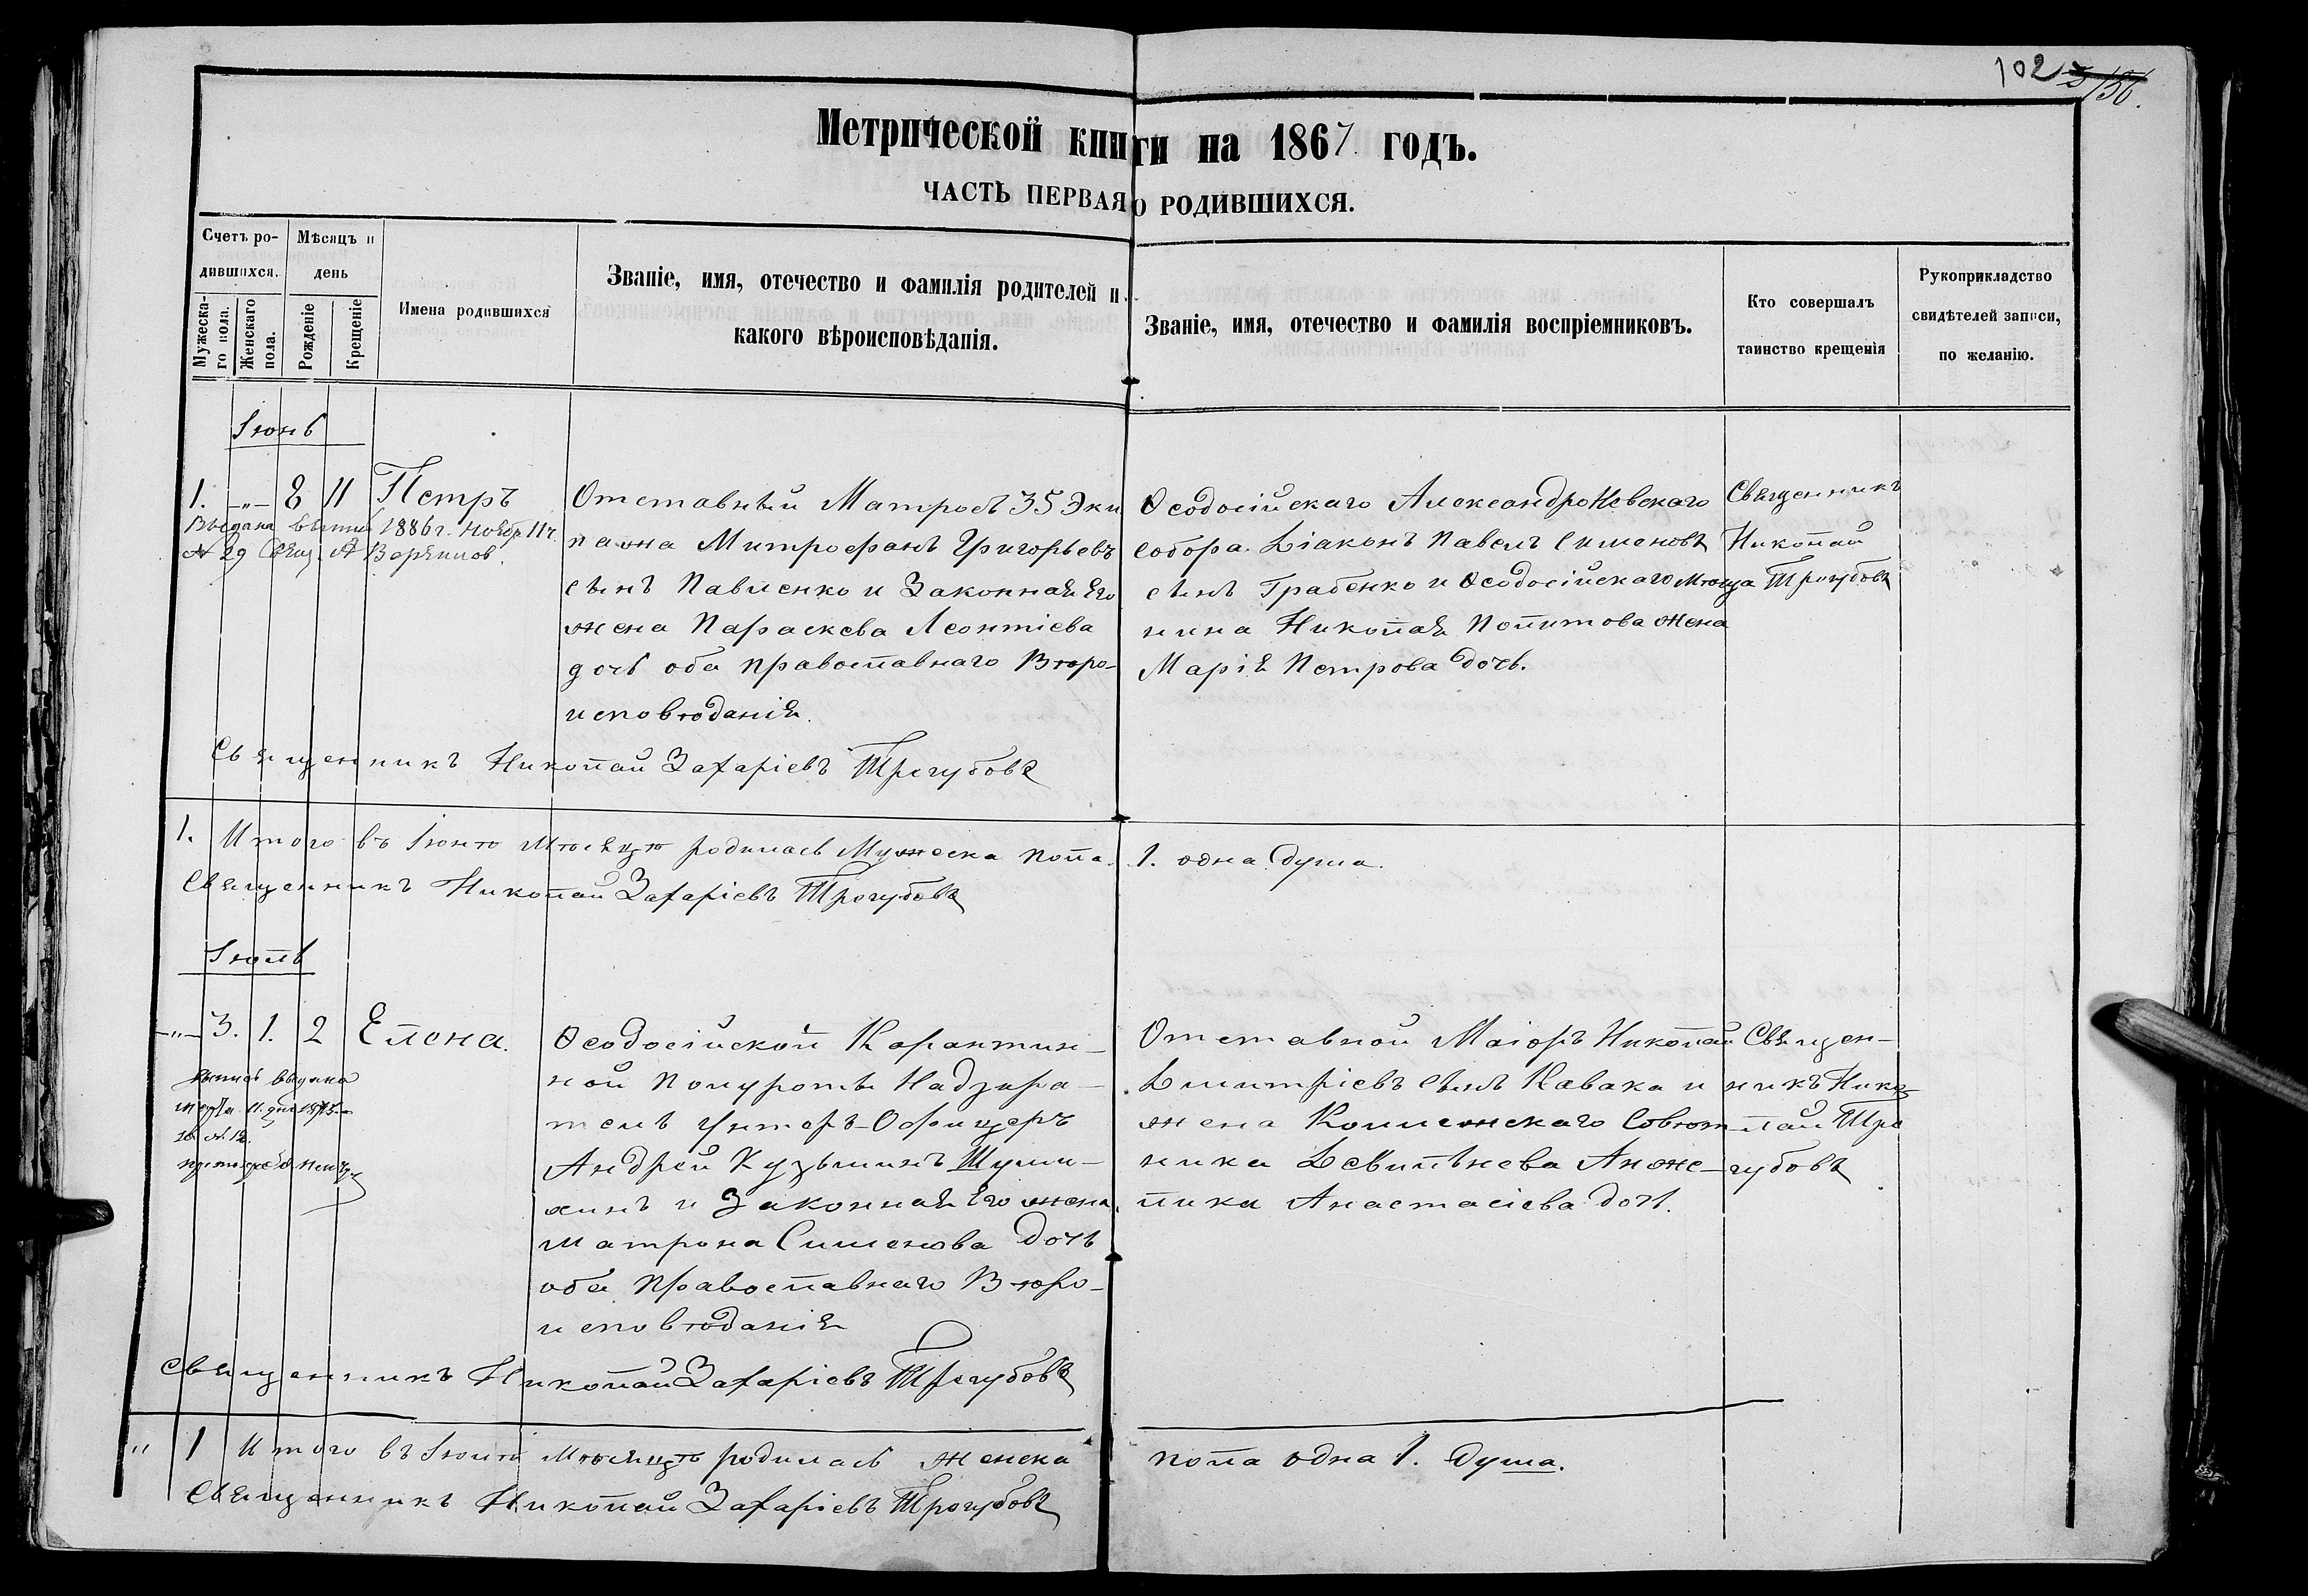 102
Метрической книги на 1867 годъ.
ЧАСТЬ ПЕРВАЯ О РОДИВШИХСЯ.
Счетъ ро-
дившихся.
Мужеска-
го пола.
Женскаго
пола.
Мѣсяцъ и
день
Рожденіе
Крещеніе
Имена родившихся
Званіе, имя, отечество и фамилія родителей и
какого вѣроисповѣданія.
Званіе, имя, отечество и фамилія воспріемниковъ.
Кто совершалъ
таинство крещенія
Рукоприкладство
свидѣтелей записи,
по желанію.
Іюнь
1. -„- 8 11 Петръ
Выдана выпись 1886 г. Ноябр 11 ч.
№ 29 Свящ. А
Отставный Матросъ 35 Эки
пажа Митрофанъ Григорьевъ
сынъ Павленко и Законная Его
жена Параскева Леонтіева
дочь оба православнаго Вѣро-
исповѣданія.
Ѳеодосійскаго АлександроНевскаго
собора Діаконъ Павелъ Сименовъ
сынъ Грабенко и Ѳеодосійскаго Мѣща
нина Николая Политова жена
Марія Петрова дочь.
Священникъ
Николай
Трегубовъ
Священникъ Николай Захаріевъ Трегубовъ
1. Итого въ Іюнѣ Мѣсяцѣ родилась Мужеска пола. 1. одна душа.
Священникъ Николай Захаріевъ Трегубовъ
Іюль
-„- 3. 1. 2 Елена.
выпись выдана
за № 12.
Ѳеодосійской Карантин-
ной Полуроты Надзира-
тель Унтеръ-Офицеръ
Андрей Кузьминъ Шуми-
хинъ и Законная Его жена
Матрона Сименова дочь
оба Православнаго Вѣро-
исповѣданія
Отставной Маіоръ Николай
Дмитріевъ сынъ Кавака и
жена Коллежскаго Совѣт-
ника Девильнева Анже-
лика Анастасіева дочь.
Священ-
никъ Нико
лай Тре
губовъ
Священникъ Николай Захаріевъ Трегубовъ
„ 1 Итого въ Іюлѣ Мѣсяцѣ родилась женска пола одна 1. душа.
Священникъ Николай Захаріевъ Трегубовъ